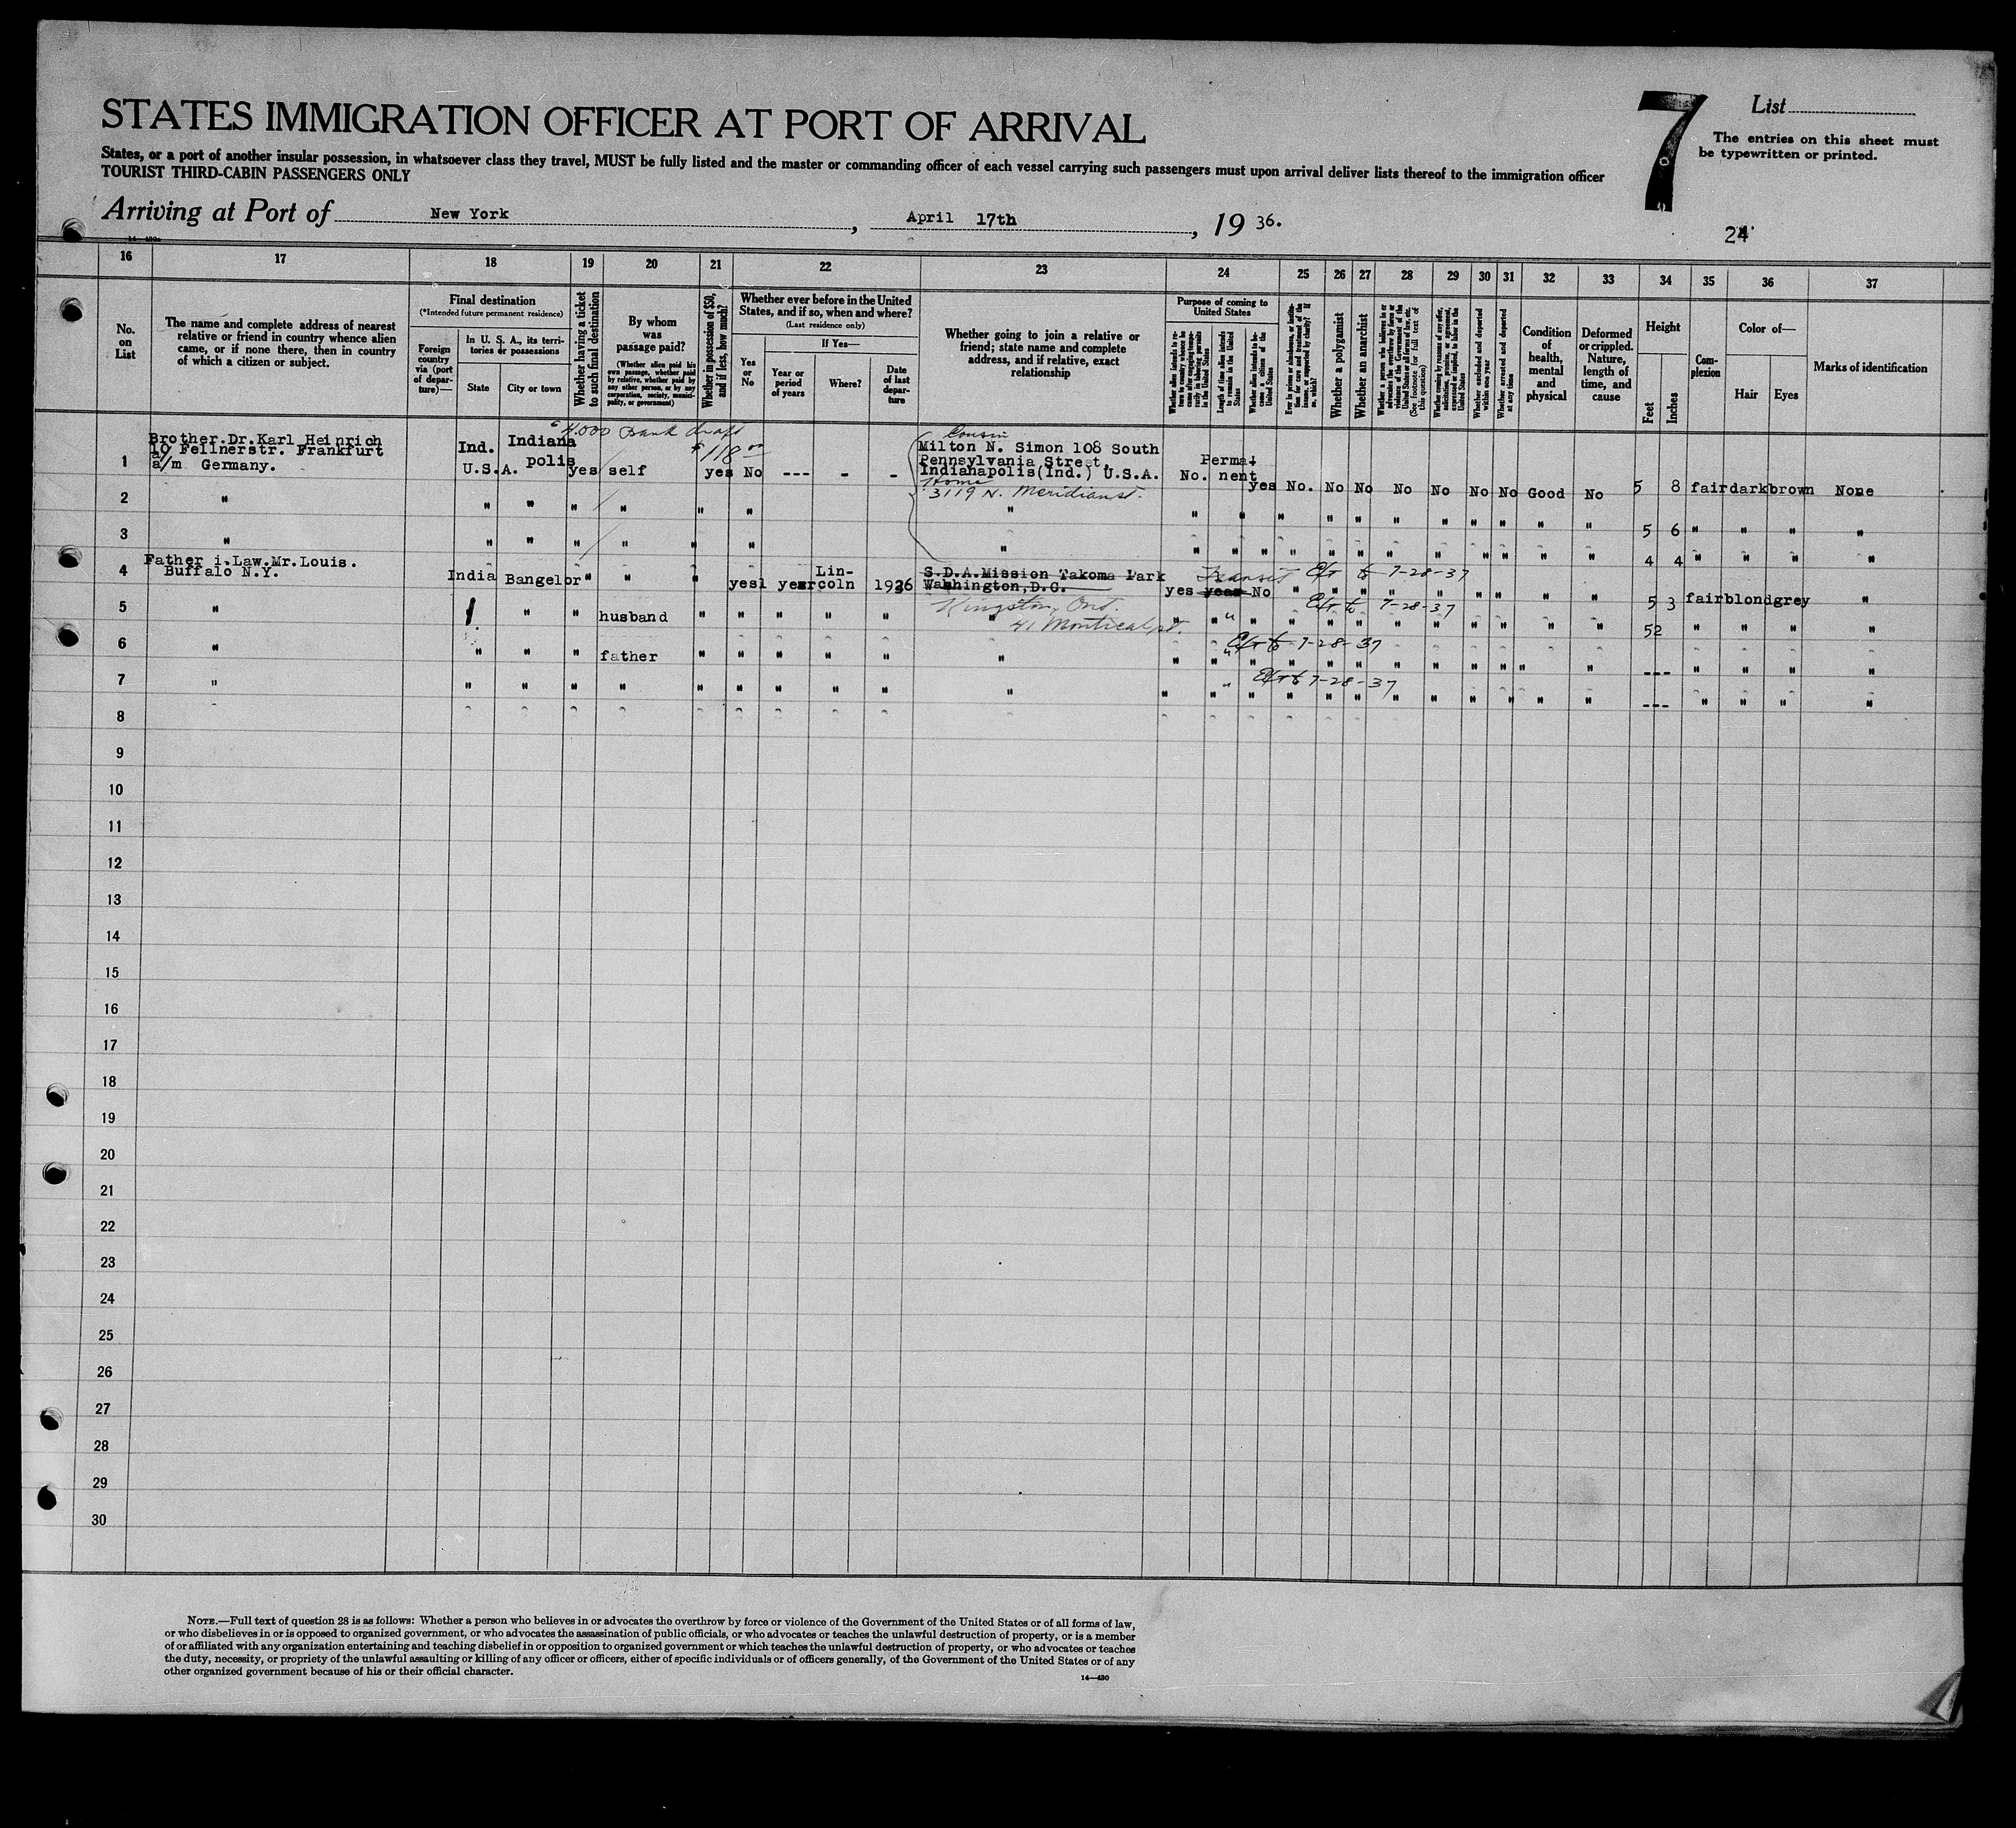 STATES IMMIGRATION OFFICER AT PORT OF ARRIVAL
7
List
The entries on this sheet must
be typewritten or printed.
States, or a port of another insular possession, in whatsoever class they travel, MUST be fully listed and the master or commanding officer of each vessel carrying such passengers must upon arrival deliver lists thereof to the immigration officer
TOURIST THIRD-CABIN PASSENGERS ONLY
Arriving at Port of New York, April 17th, 19 36.
24
16 17 18 19 20 21 22 23 24 25 26 27 28 29 30 31 32 33 34 35 36 37
No. on List
The name and complete address of nearest relative or friend in country whence alien came, or if none there, then in country of which a citizen or subject.
Final destination
(*Intended future permanent residence)
Foreign country via (port of departure)—
In U. S. A., its territories or possessions
State
City or town
Whether having a ticket to such final destination
By whom was passage paid?
(Whether alien paid his own passage, whether paid by relative, whether paid by any other person, or by any corporation, society, municipality, or government)
Whether in possession of $50, and if less, how much?
Whether ever before in the United States, and if so, when and where?
(Last residence only)
Yes or No
If Yes—
Year or period of years
Where?
Date of last departure
Whether going to join a relative or friend; state name and complete address, and if relative, exact relationship
Purpose of coming to United States
Length of time alien intends to remain in the United States
Whether alien intends to become a citizen of the United States
Whether a polygamist
Whether an anarchist
(See footnote for full text of this question)
Whether excluded and deported within one year
Whether arrested and deported at any time
Condition of health, mental and physical
Deformed or crippled. Nature, length of time, and cause
Height
Feet
Inches
Complexion
Color of—
Hair
Eyes
Marks of identification
4,000 Bank draft
$118.00
Cousin
1 Brother.Dr.Karl Heinrich
10 Fellnerstr. Frankfurt
a/m Germany.
Ind. Indiana
polis
U.S.A. yes self yes No --- - -
Milton N. Simon 108 South
Pennsylvania Street,
Indianapolis(Ind.) U.S.A.
No. Permanent yes No. No No No No No No Good No 5 8 fair dark brown None
Home
3119 N. Meridian st.
2 " " " " " " " " " " " " " " " " " " " " " 5 6 " " " "
3 " " " " " " " " " " " " " " " " " " " " " 4 4 " " " "
4 Father i.Law.Mr.Louis.
Buffalo N.Y.
India Bangelor " " " yes 1 year Lin-
coln 1926
S.D.A.Mission Takoma Park
Washington,D.C.
yes year No " " " " " " " " " 5 3 fair blond grey "
Transit
7-28-37
Kingston, Ont.
5 " " " husband " " " " " " " " " " " " " " " " " " " " 52 " " " "
7-28-37
6 " " " " father " " " " " " " " " " " " " " " " " " " " --- " " " "
7-28-37
7 " " " " " " " " " " " " " " " " " " " " " " " " " --- " " " "
7-28-37
8
9
10
11
12
13
14
15
16
17
18
19
20
21
22
23
24
25
26
27
28
29
30
NOTE.—Full text of question 28 is as follows: Whether a person who believes in or advocates the overthrow by force or violence of the Government of the United States or of all forms of law,
or who disbelieves in or is opposed to organized government, or who advocates the assassination of public officials, or who advocates or teaches the unlawful destruction of property, or is a member
of or affiliated with any organization entertaining and teaching disbelief in or opposition to organized government or which teaches the unlawful destruction of property, or who advocates or teaches
the duty, necessity, or propriety of the unlawful assaulting or killing of any officer or officers, either of specific individuals or of officers generally, of the Government of the United States or of any
other organized government because of his or their official character.
14—430